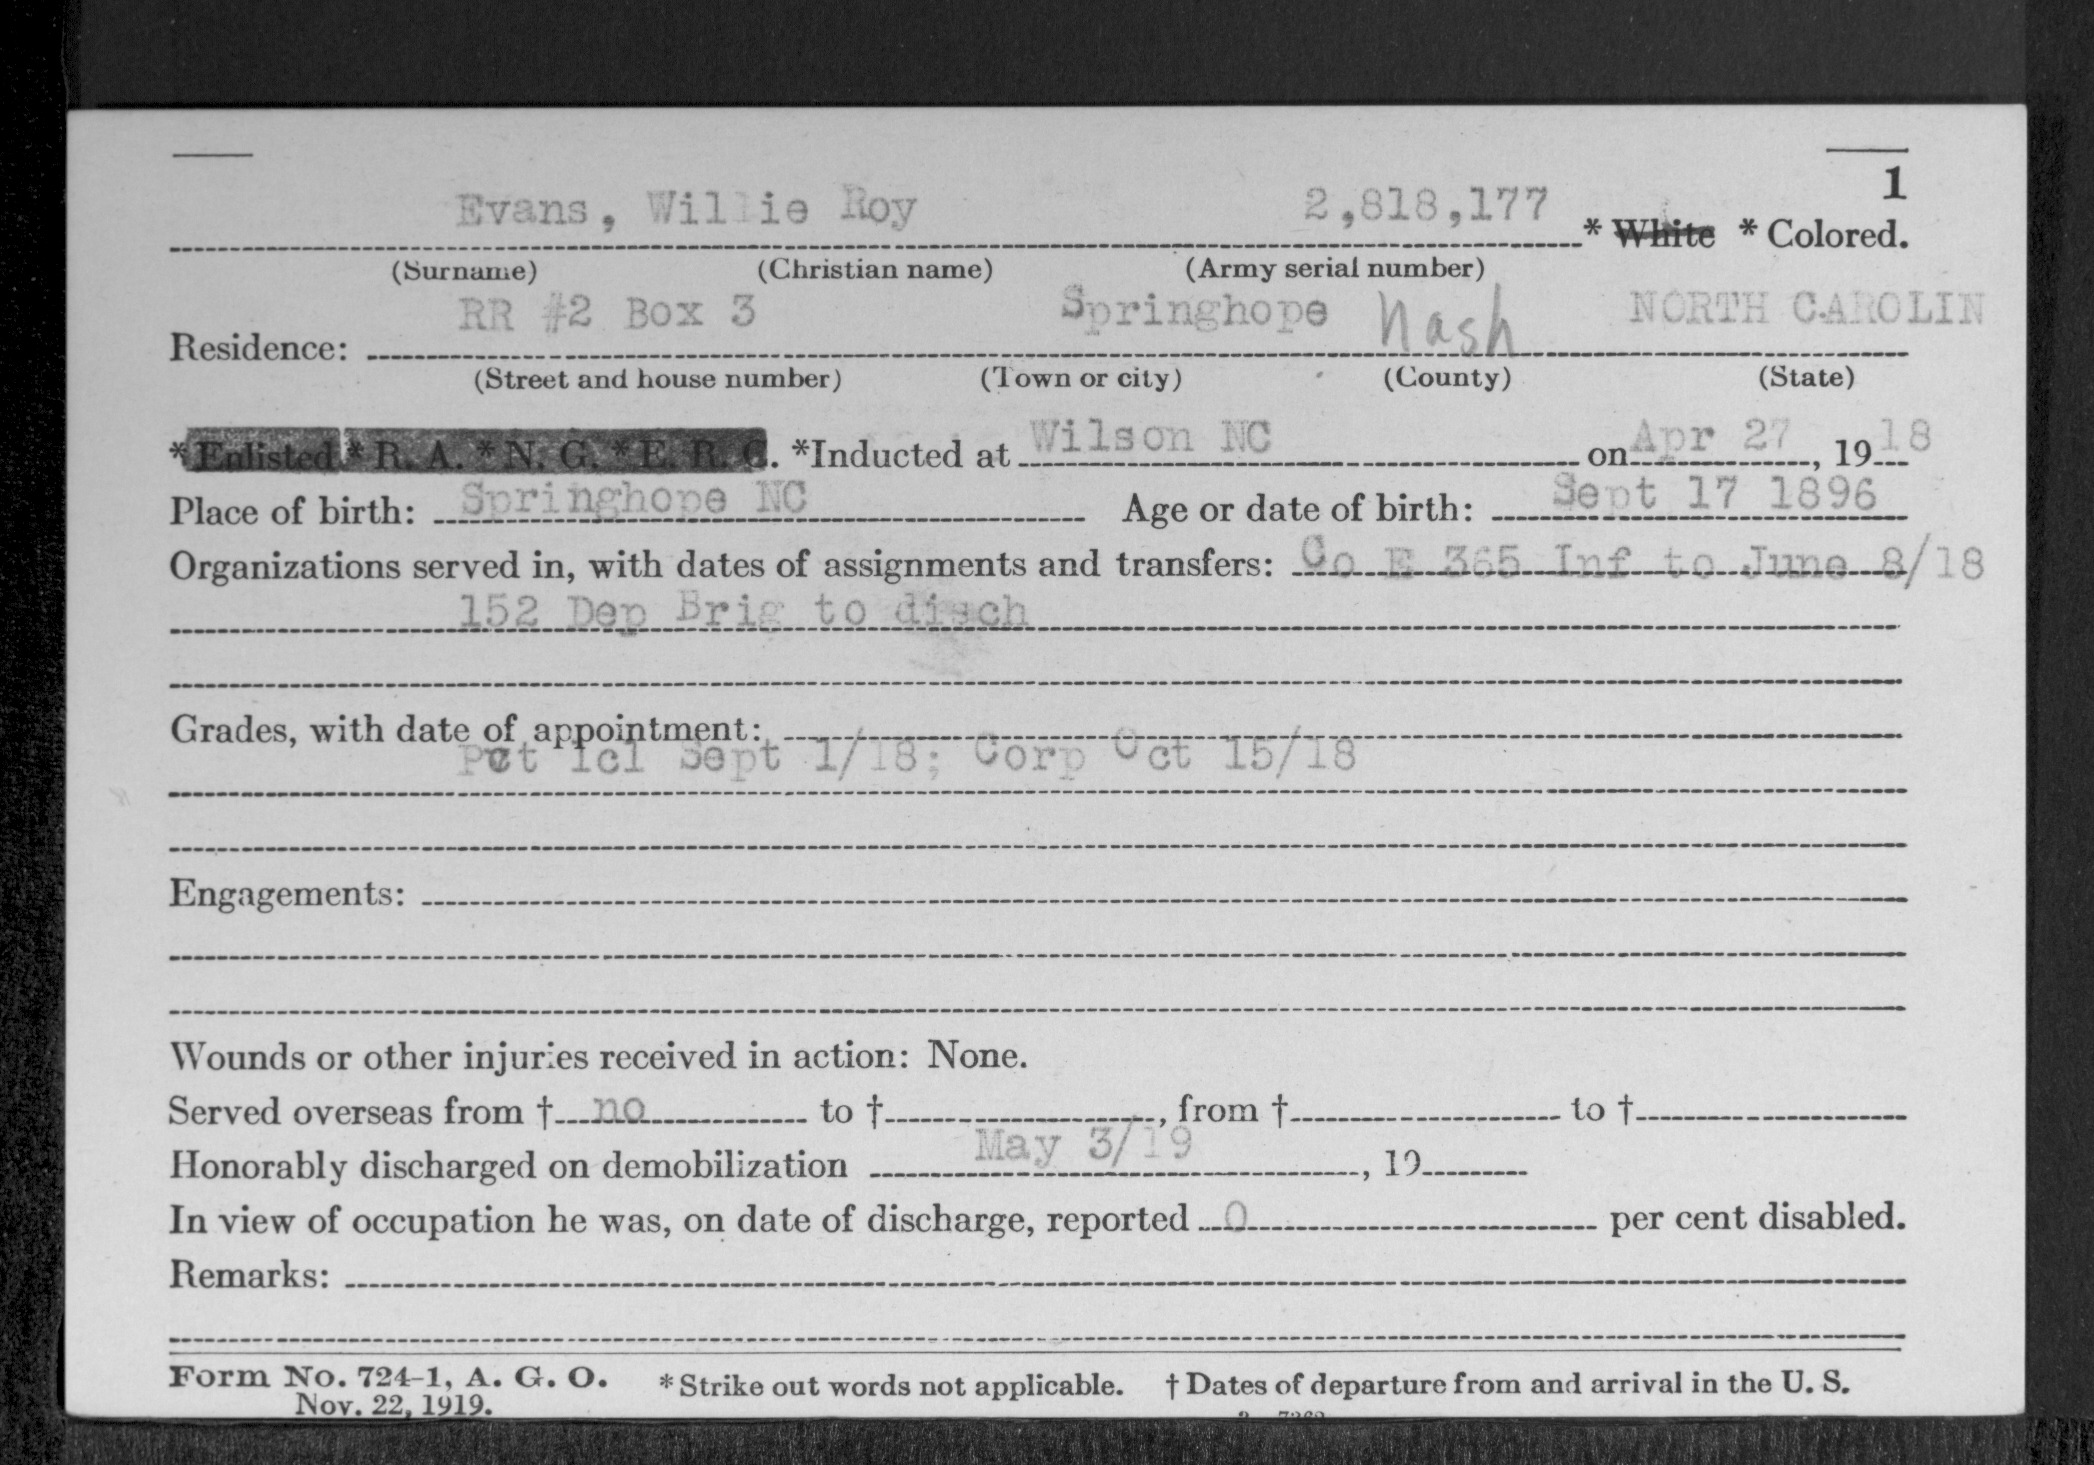 1
Evans, Willie Roy 2,818,177 * White * Colored.
(Surname) (Christian name) (Army serial number)
RR #2 Box 3 Springhope Nash NORTH CAROLIN
Residence:
(Street and house number) (Town or city) (County) (State)
* Enlisted * R. A. * N. G. * E. R. C. *Inducted at Wilson NC on Apr 27, 1918
Place of birth: Springhope NC Age or date of birth: Sept 17 1896
Organizations served in, with dates of assignments and transfers: Co E 365 Inf to June 8/18
152 Dep Brig to disch
Grades, with date of appointment:
Pct 1cl Sept 1/18; Corp Oct 15/18
Engagements:
Wounds or other injuries received in action: None.
Served overseas from † no to †, from † to †
Honorably discharged on demobilization May 3/19, 19
In view of occupation he was, on date of discharge, reported 0 per cent disabled.
Remarks:
Form No. 724-1, A. G. O. * Strike out words not applicable. † Dates of departure from and arrival in the U. S.
Nov. 22, 1919.